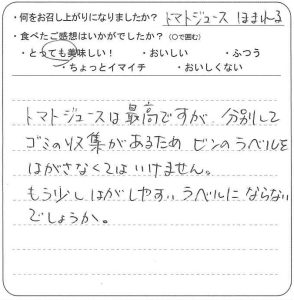 ・何をお召し上がりになりましたか？ トマトジュース ほまれ
・食べたご感想はいかがでしたか？（○で囲む）
・とっても美味しい！ ・おいしい ・ふつう
・ちょっとイマイチ ・おいしくない
トマトジュースは最高ですが 分別して
ゴミの収集があるため ビンのラベルを
はがさなくてはいけません。
もう少しはがしやすいラベルにならない
でしょうか。